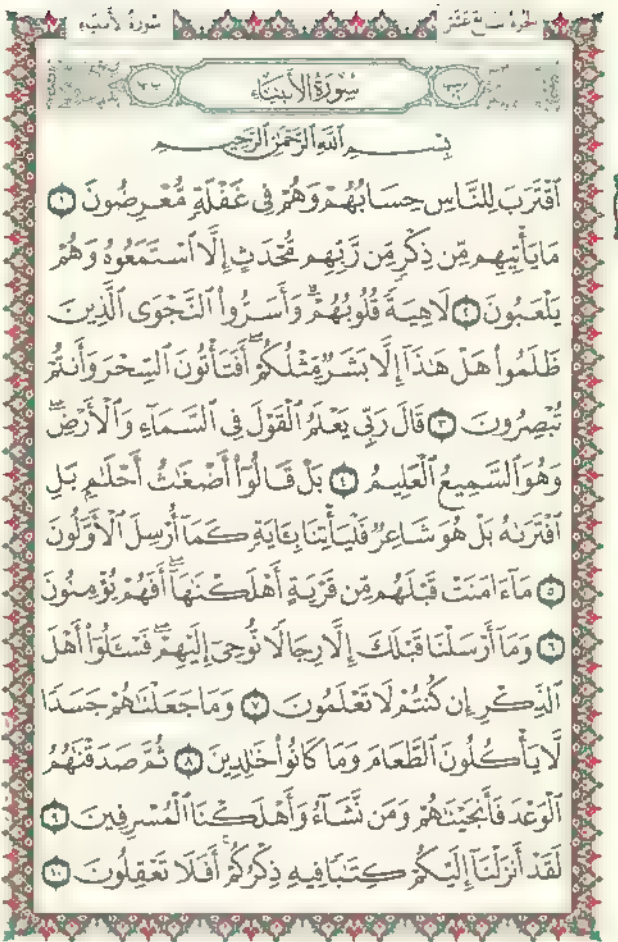 الجزء السابع عشر
سورة الأنبياء
سُورَةُ الأَنبِيَاء
بِسْمِ ٱللَّهِ ٱلرَّحْمَٰنِ ٱلرَّحِيمِ
ٱقْتَرَبَ لِلنَّاسِ حِسَابُهُمْ وَهُمْ فِى غَفْلَةٍ مُّعْرِضُونَ ١
مَا يَأْتِيهِم مِّن ذِكْرٍ مِّن رَّبِّهِم مُّحْدَثٍ إِلَّا ٱسْتَمَعُوهُ وَهُمْ
يَلْعَبُونَ ٢ لَاهِيَةً قُلُوبُهُمْ ۗ وَأَسَرُّوا۟ ٱلنَّجْوَى ٱلَّذِينَ
ظَلَمُوا۟ هَلْ هَٰذَآ إِلَّا بَشَرٌ مِّثْلُكُمْ ۖ أَفَتَأْتُونَ ٱلسِّحْرَ وَأَنتُمْ
تُبْصِرُونَ ٣ قَالَ رَبِّى يَعْلَمُ ٱلْقَوْلَ فِى ٱلسَّمَآءِ وَٱلْأَرْضِ ۖ
وَهُوَ ٱلسَّمِيعُ ٱلْعَلِيمُ ٤ بَلْ قَالُوٓا۟ أَضْغَٰثُ أَحْلَٰمٍۭ بَلِ
ٱفْتَرَىٰهُ بَلْ هُوَ شَاعِرٌ فَلْيَأْتِنَا بِـَٔايَةٍ كَمَآ أُرْسِلَ ٱلْأَوَّلُونَ
٥ مَآ ءَامَنَتْ قَبْلَهُم مِّن قَرْيَةٍ أَهْلَكْنَٰهَآ ۖ أَفَهُمْ يُؤْمِنُونَ
٦ وَمَآ أَرْسَلْنَا قَبْلَكَ إِلَّا رِجَالًا نُّوحِىٓ إِلَيْهِمْ ۖ فَسْـَٔلُوٓا۟ أَهْلَ
ٱلذِّكْرِ إِن كُنتُمْ لَا تَعْلَمُونَ ٧ وَمَا جَعَلْنَٰهُمْ جَسَدًا
لَّا يَأْكُلُونَ ٱلطَّعَامَ وَمَا كَانُوا۟ خَٰلِدِينَ ٨ ثُمَّ صَدَقْنَٰهُمُ
ٱلْوَعْدَ فَأَنجَيْنَٰهُمْ وَمَن نَّشَآءُ وَأَهْلَكْنَا ٱلْمُسْرِفِينَ ٩
لَقَدْ أَنزَلْنَآ إِلَيْكُمْ كِتَٰبًا فِيهِ ذِكْرُكُمْ ۖ أَفَلَا تَعْقِلُونَ ١٠